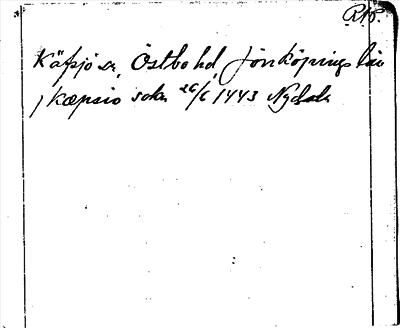 RAP.
Käfsjö sn, Östbo hd, Jönköpings län
j Kæpsio sokn 26/6 1443 Nydala